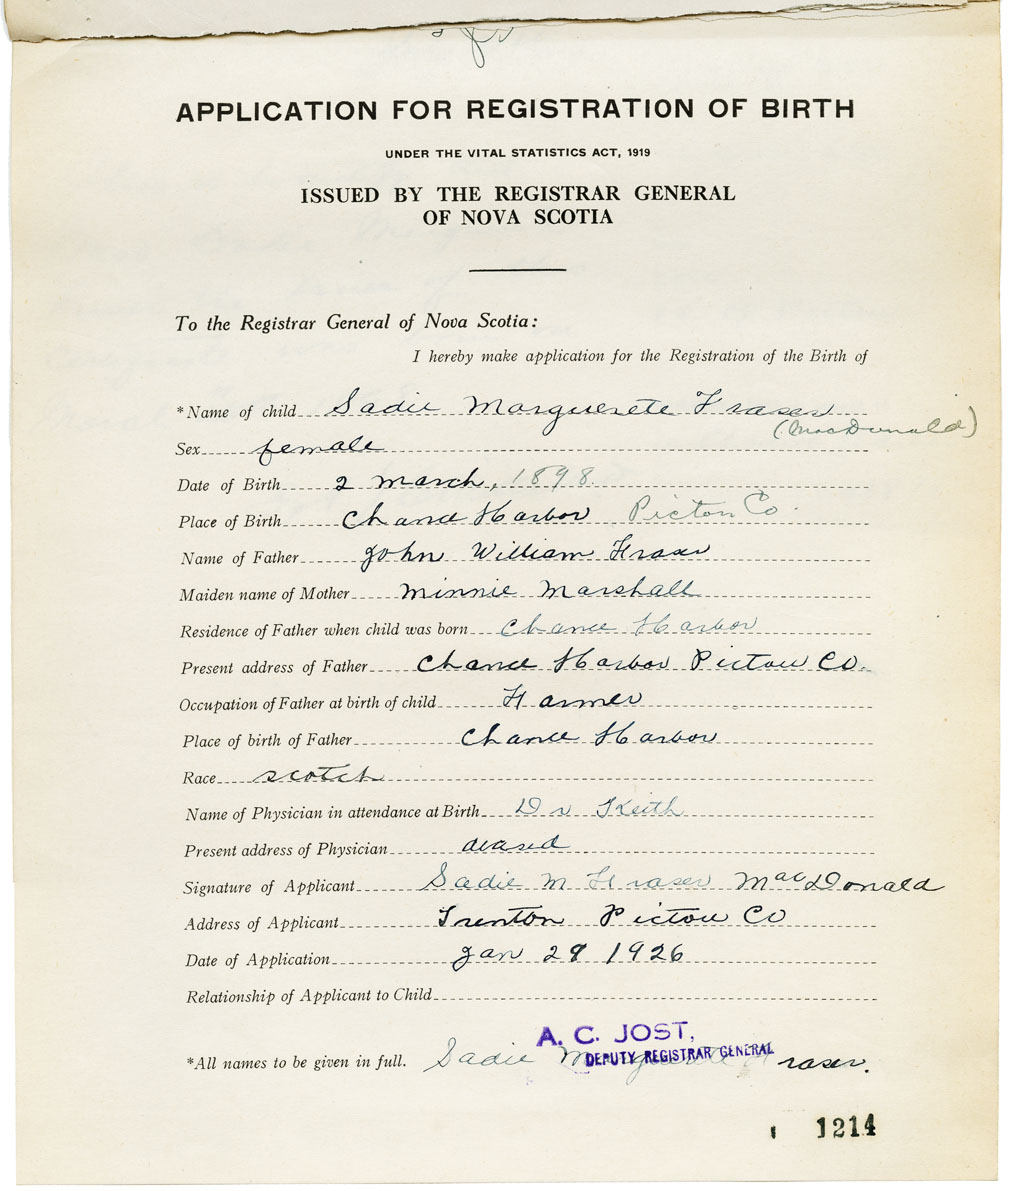 APPLICATION FOR REGISTRATION OF BIRTH
UNDER THE VITAL STATISTICS ACT, 1919
ISSUED BY THE REGISTRAR GENERAL
OF NOVA SCOTIA
To the Registrar General of Nova Scotia:
I hereby make application for the Registration of the Birth of
*Name of child Sadie Marguerete Fraser
(MacDonald)
Sex female
Date of Birth 2 March, 1898
Place of Birth Chance Harbor Pictou Co.
Name of Father John William Fraser
Maiden name of Mother Minnie Marshall
Residence of Father when child was born Chance Harbor
Present address of Father Chance Harbor Pictou Co.
Occupation of Father at birth of child Farmer
Place of birth of Father Chance Harbor
Race scotch
Name of Physician in attendance at Birth Dr Keith
Present address of Physician
Signature of Applicant Sadie M Fraser MacDonald
Address of Applicant Trenton Pictou Co
Date of Application Jan 28 1926
Relationship of Applicant to Child
A. C. JOST,
DEPUTY REGISTRAR GENERAL
*All names to be given in full. Sadie Marguerete Fraser.
1214